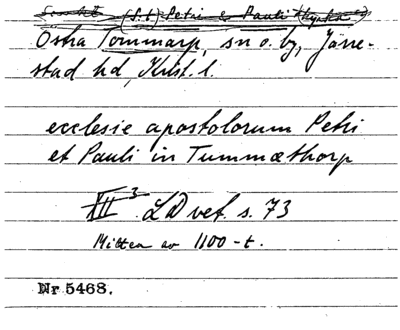 (S:t) Petri o Pauli (kyrka)
Östra Tommarp, sn o. by, Järre-
stad hd, Krist. l.
ecclesie apostolorum Petri
et Pauli in Tummæthorp
XII 3 LD vet. s. 73
Mitten av 1100-t.
Nr 5468.